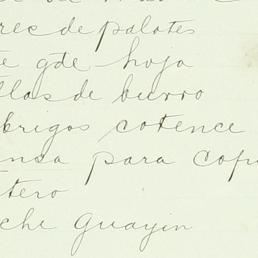 rec de palotes
te gde hoja
llas de burro
brigos cotence
ensa para cop
tero
che Guayin